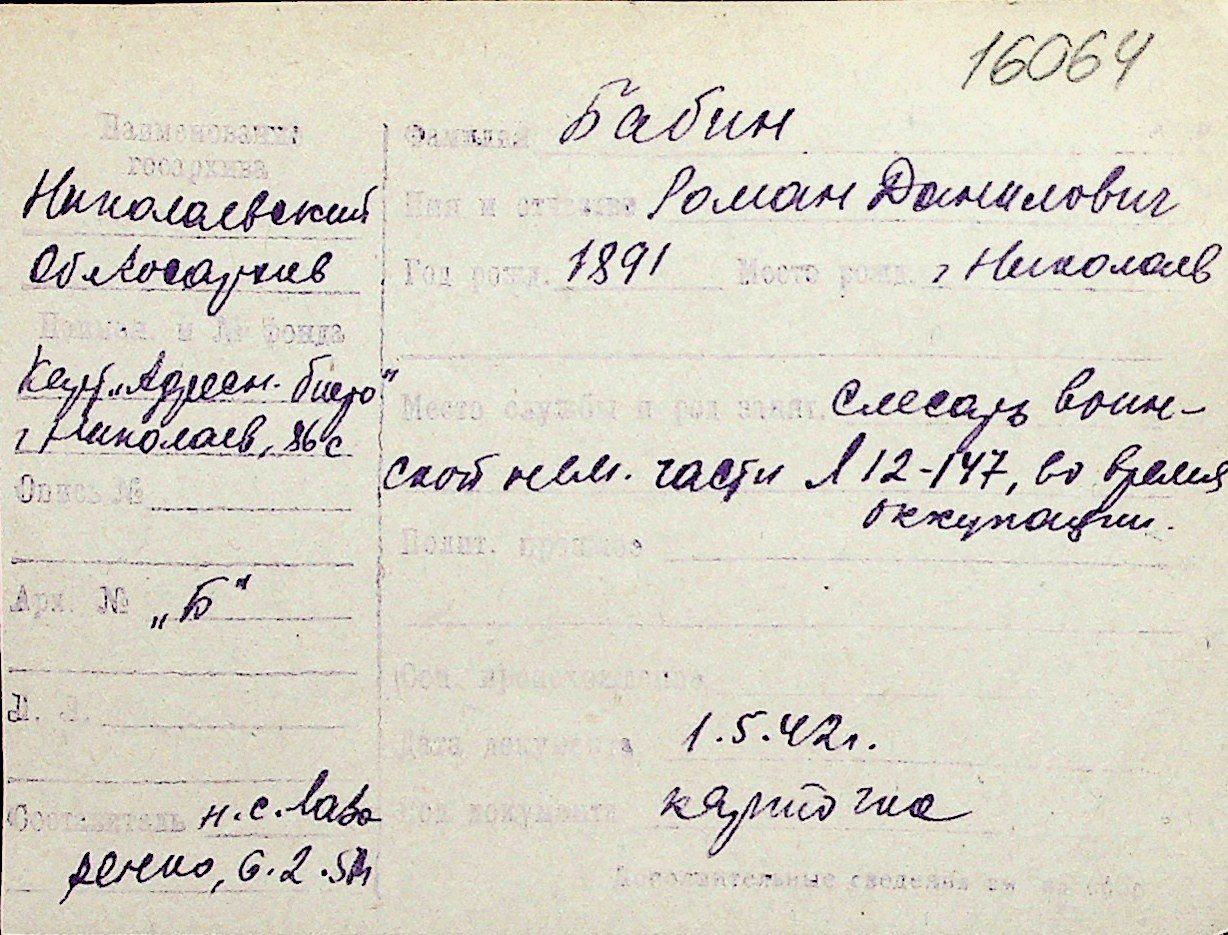 16064
Наименование
госархива
Николаевский
Облгосархив
Наимен. и № фонда
Карт. „Адресн. бюро"
г Николаев, 86 с
Опись №
Арх. № „Б"
Л. Л.
Составитель н.с. Лаза
ренко, 6.2.
Фамилия Бабин
Имя и отчество Роман Данилович
Год рожд. 1891 Место рожд. г Николаев
Место службы и род занят. слесарь воин-
ской нем. части Л 12-147, во время
оккупации.
Полит. прошлое
Соц. происхождение
Дата документа 1.5.42г.
документа карточка
Дополнительные сведения см на обор